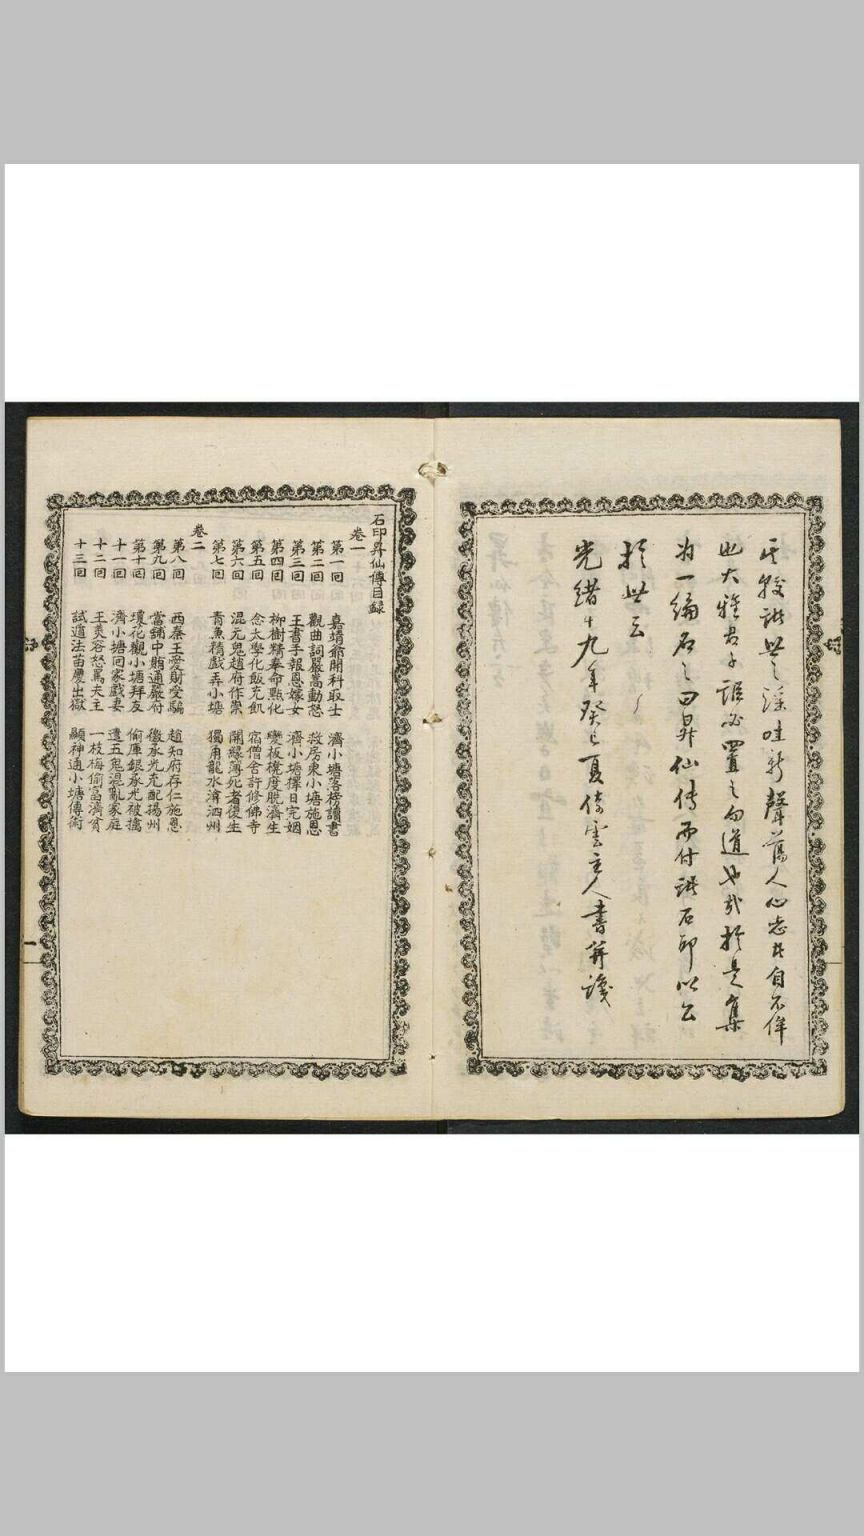 其較諸世之淫哇新聲舊人心志者自不侔
也大雅君子詎必置之勿道也哉於是集
為一編名之曰昇仙傳而付諸石印以公
於世云
光緒十九年癸巳夏倚雲主人書並識
石印昇仙傳目録
卷一
第一回 嘉靖爺開科取士 濟小塘落榜讀書
第二回 觀曲詞嚴嵩動怒 救房東小塘施恩
第三回 王書手報恩嫁女 濟小塘擇日完姻
第四回 柳樹精奉命點化 變板櫈度脫濟生
第五回 念太學化飯充飢 宿僧舍許修佛寺
第六回 混元鬼趙府作祟 開緑簿死者復生
第七回 青魚精戲弄小塘 獨角龍水渰泗州
卷二
第八回 西秦王愛財受騙 趙知府存仁施恩
第九回 當舖中賄通嚴府 徽承光充配揚州
第十回 瓊花觀小塘拜友 偷庫銀承光被擒
十一回 濟小塘回家戲妻 遣五鬼混亂家庭
十二回 王美容怒罵夫主 一枝梅偷富濟貧
十三回 試道法苗慶出獄 顯神通小塘傳術